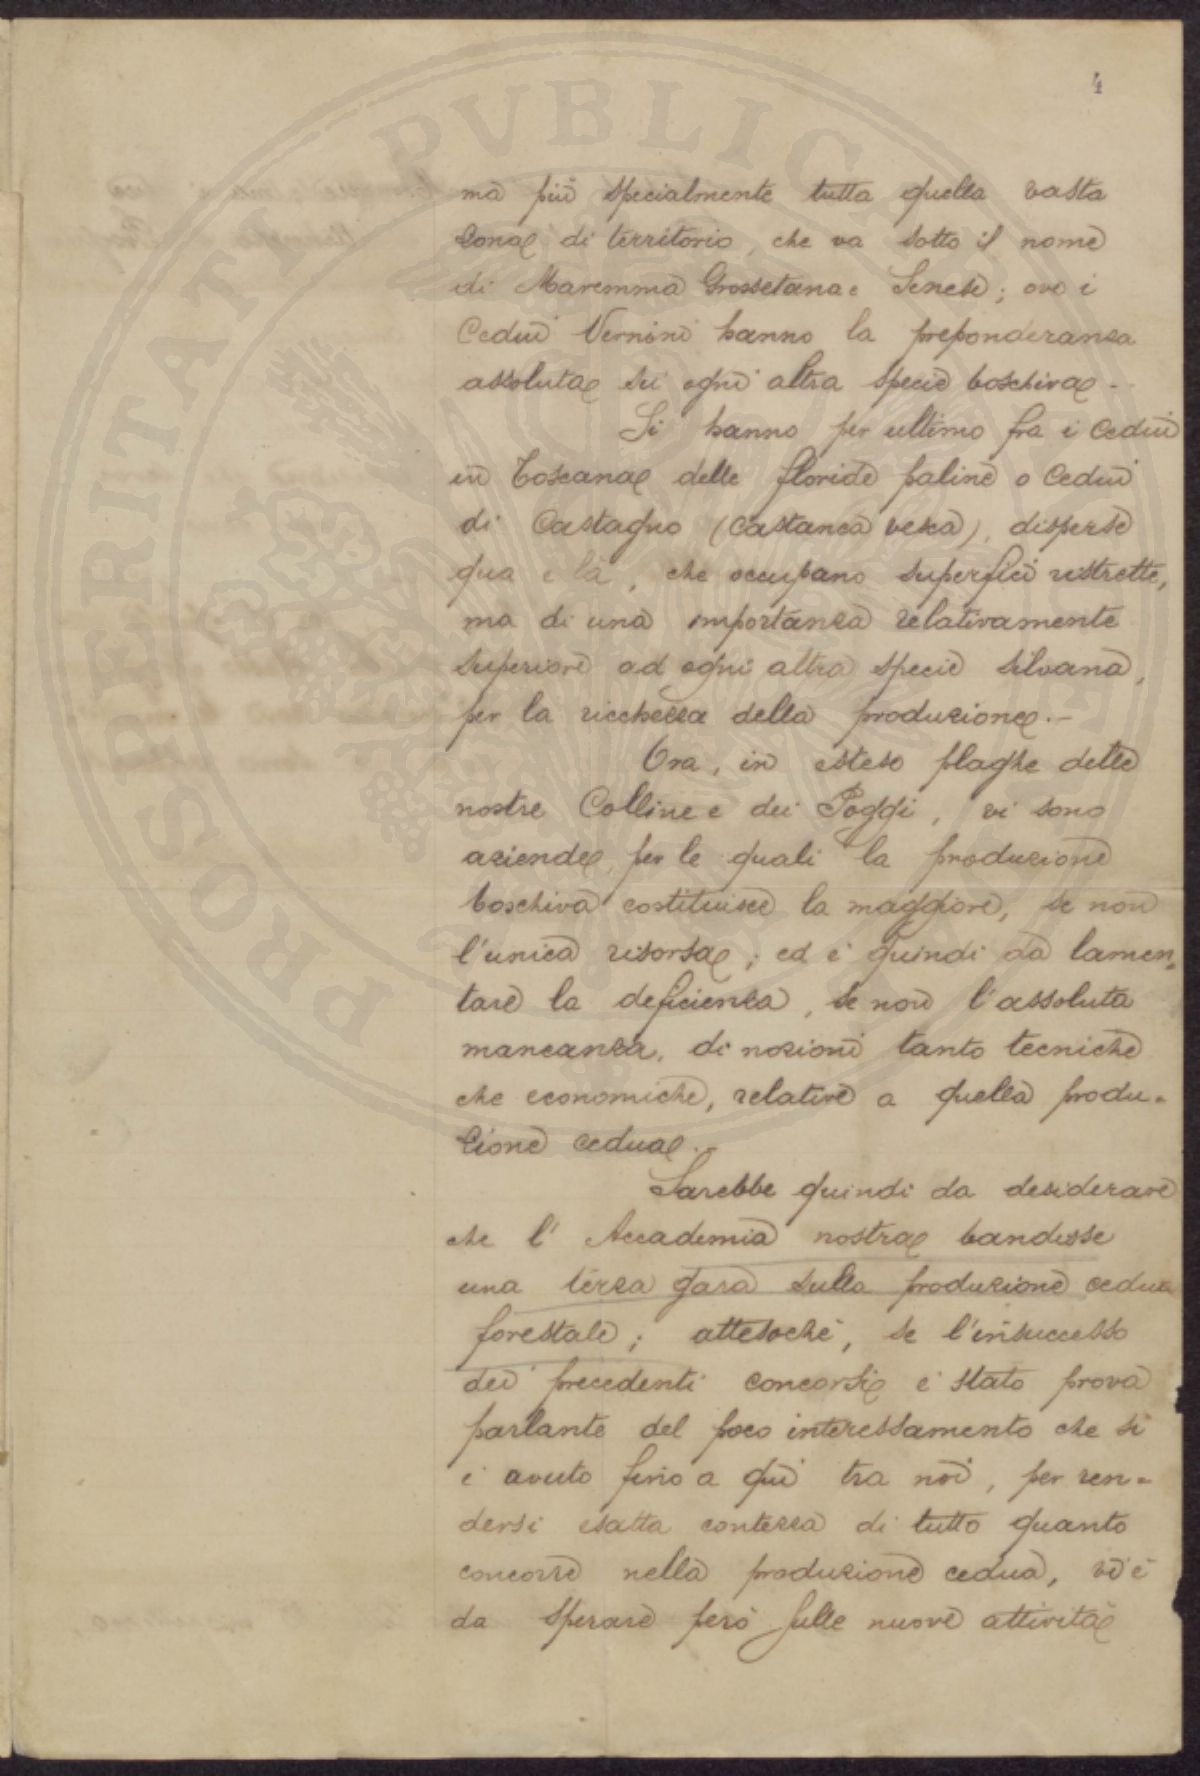 4
ma più specialmente tutta quella vasta
zona di territorio, che va sotto il nome
di Maremma Grossetana e Senese; ove i
Cedui Vernini hanno la preponderanza
assoluta su ogni altra specie boschiva.-
Si hanno per ultimo fra i Cedui
in Toscana delle floride paline o Cedui
di Castagno (Castanea vesca), disperse
qua e là, che occupano superfici ristrette,
ma di una importanza relativamente
superiore ad ogni altra specie silvana,
per la ricchezza della produzione.-
Ora, in estese plaghe delle
nostre Colline e dei Poggi, vi sono
aziende, per le quali la produzione
boschiva costituisce la maggiore, se non
l'unica risorsa; ed è quindi da lamen-
tare la deficienza, se non l'assoluta
mancanza, di nozioni tanto tecniche
che economiche, relative a quella produ-
zione cedua.-
Sarebbe quindi da desiderare
che l'Accademia nostra bandisse
una terza gara sulla produzione cedua
forestale; attesochè, se l'insuccesso
dei precedenti concorsi è stato prova
parlante del poco interessamento che si
è avuto fino a quì tra noi, per ren-
dersi esatta contezza di tutto quanto
concorre nella produzione cedua, vi è
da sperare però sulle nuove attività
PROSPERITATI PVBLICAE